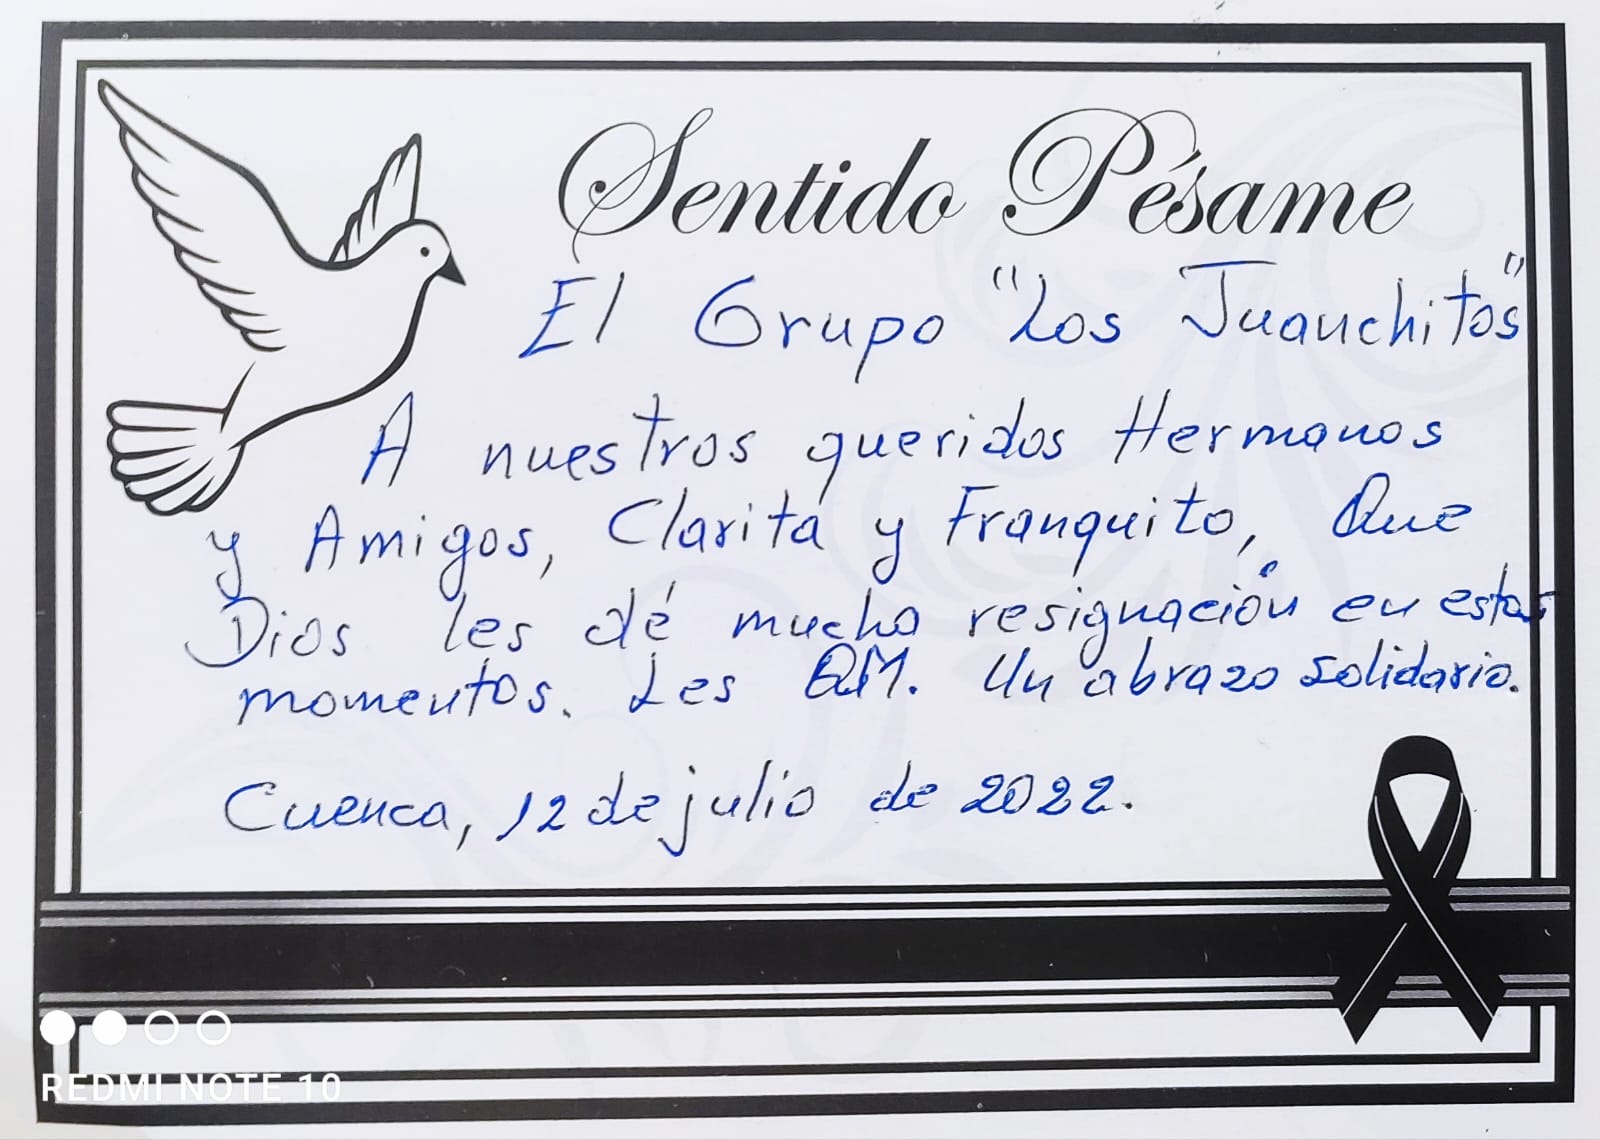 Sentido Pésame
El Grupo "Los Juanchitos"
A nuestros queridos Hermanos
y Amigos, Clarita y Franquito, Que
Dios les dé mucha resignación en estos
momentos. Les QM. Un abrazo solidario.
Cuenca, 12 de julio de 2022.
REDMI NOTE 10